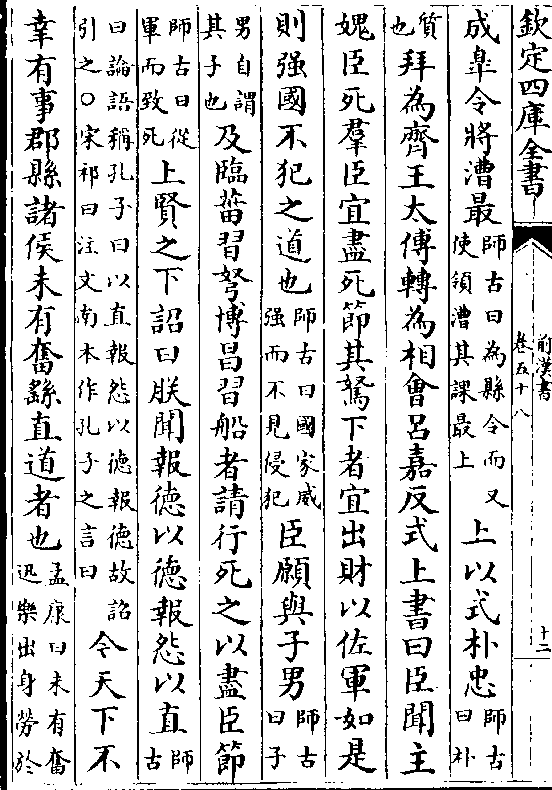 欽定四庫全書
前漢書
卷五十八
十二
成臯令將漕最師古曰為縣令而又使領漕其課最上上以式朴忠師古曰朴
質也拜為齊王太傅轉為相會呂嘉反式上書曰臣聞主
媿臣死羣臣宜盡死節其駑下者宜出財以佐軍如是
則强國不犯之道也師古曰國家威强而不見侵犯臣願與子男師古曰子
男自謂其子也及臨菑習弩博昌習船者請行死之以盡臣節
師古曰從軍而致死上賢之下詔曰朕聞報德以德報怨以直師古
曰論語稱孔子曰以直報怨以德報德故詔引之○宋祁曰注文南本作孔子之言曰令天下不
幸有事郡縣諸侯未有奮繇直道者也孟康曰未有奮迅樂出身勞於